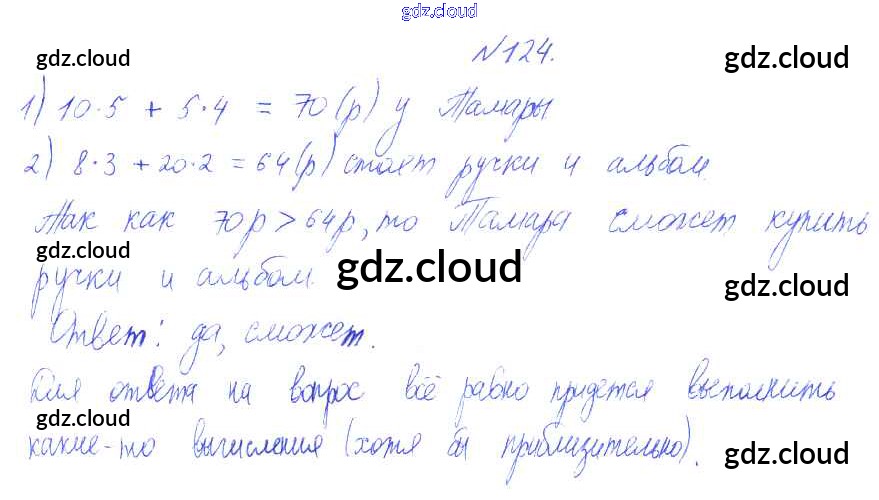 gdz.cloud
№124.
gdz.cloud gdz.cloud
1) 10·5 + 5·4 = 70(р) у Тамары
2) 8·3 + 20·2 = 64(р) стоят ручки и альбом.
Так как 70р > 64р, то Тамара сможет купить
gdz.cloud
ручки и альбом.
gdz.cloud gdz.cloud
Ответ: да, сможет.
Для ответа на вопрос всё равно придется выполнить
gdz.cloud
какие-то вычисления (хотя бы приблизительно).
gdz.cloud